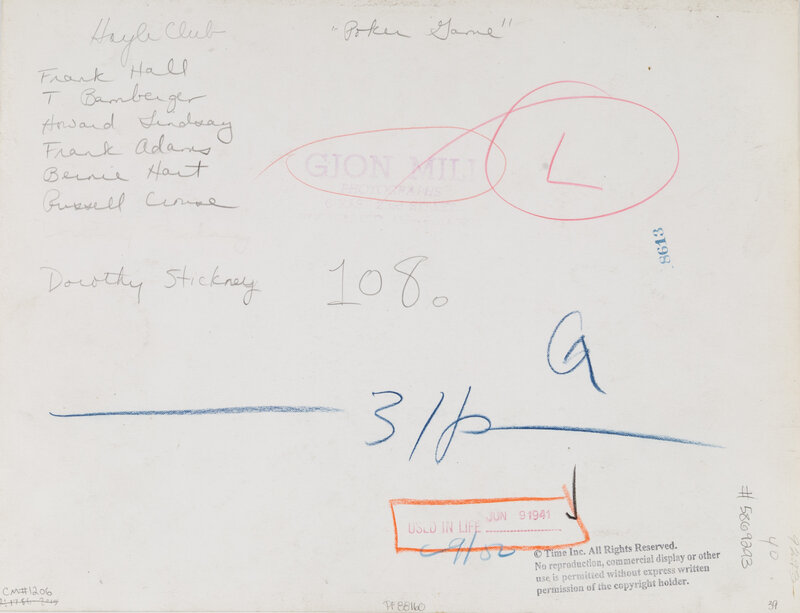 Hoyle Club
"Poker Game"
Frank Hall
T Bamberger
Howard Lindsay
Frank Adams
Bernie Hart
Russell Crouse
GJON MILI
PHOTOGRAPHS
L
8613
Dorothy Stickney
108.
G
31p
USED IN LIFE JUN 9 1941
# 5869293
40
© Time Inc. All Rights Reserved.
No reproduction, commercial display or other
use is permitted without express written
permission of the copyright holder.
CM#1206
39